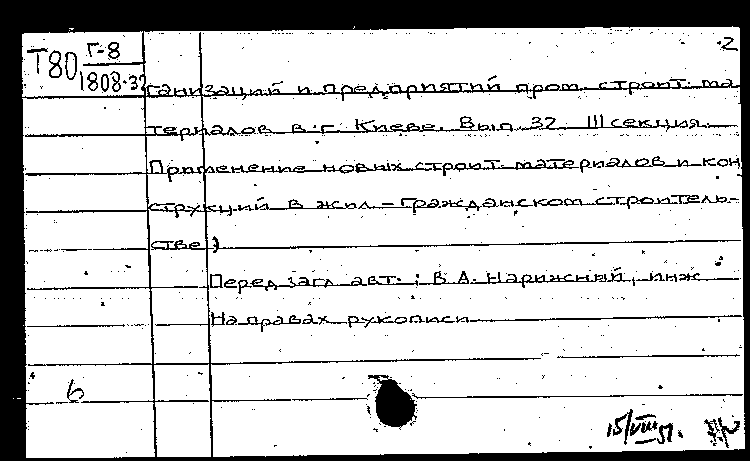 2
Т80 Г-8
1808.32
ганизаций и предприятий пром. строит. ма
териалов в г. Киеве. Вып. 32. III секция.
Применение новых строит. материалов и кон
струкций в жил-гражданском строитель-
стве)
Перед загл. авт.: В.А. Нарижный, инж
На правах рукописи
6
15/VIII 51.